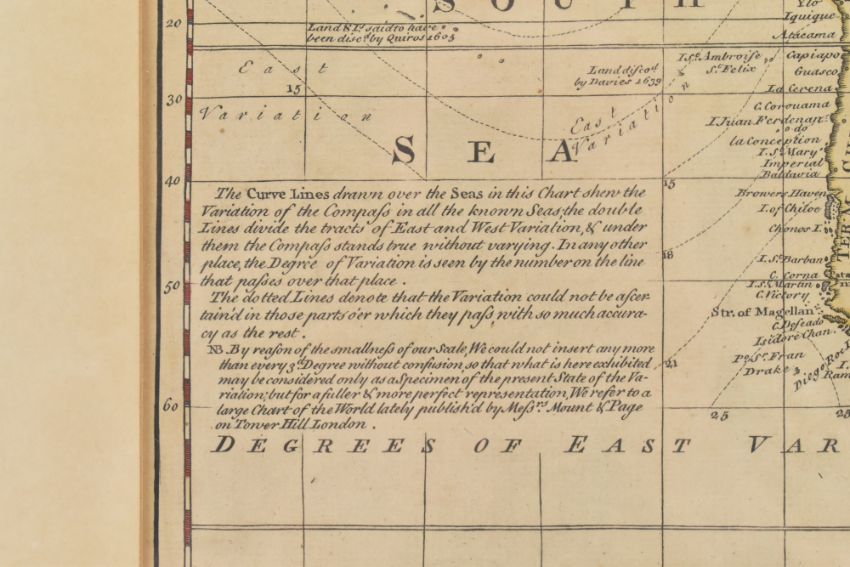 SOUTH
20
Land &c. said to have
been discd. by Quiros 1605
Ylo
Iquique
Atacama
East
15
Land discod.
by Davies 1639
I. St. Ambroise
St. Felix
Capiapo
Guasco
La Cerena
30
Variation
East
Variation
C. Corouama
I. Juan Ferdenandz.
do
SEA
la Conception
I. St. Mary
Imperial
Baldavia
40
15
The Curve Lines drawn over the Seas in this Chart shew the
Variation of the Compaſs in all the known Seas; the double
Lines divide the tracts of East and West Variation, & under
them the Compaſs stands true without varying. In any other
place, the Degree of Variation is seen by the number on the line
that paſses over that place.
The dotted Lines denote that the Variation could not be aſcer
tain'd in those parts o'er which they paſs, with so much accura-
cy as the rest.
NB. By reaſon of the smallneſs of our Scale, We could not insert any more
than every 3d. Degree without confusion, so that what is here exhibited
may be considered only as a Specimen of the present State of the Va-
riation; but for a fuller & more perfect representation, We refer to a
large Chart of the World lately publish'd by Meſsrs. Mount & Page
on Tower Hill London.
Browers Haven
I. of Chiloe
Chonos I.
18
I. St. Barban
C. Corna
50
I. St. Martin
C. Victory
Str. of Magellan
C. Deseado
Isidore Chan.
21
Po. St. Fran
Drake 3
Diego
60
25
TERA M
DEGREES OF EAST VAR